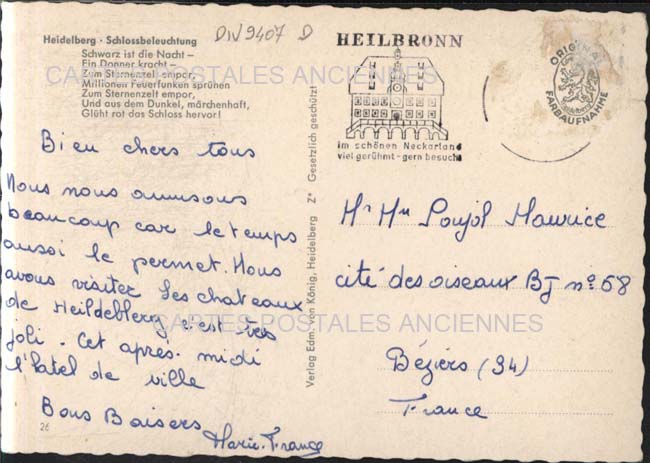 DIV9407 D
Heidelberg · Schlossbeleuchtung
Schwarz ist die Nacht –
Ein Donner kracht –
Zum Sternenzelt empor,
Millionen Feuerfunken sprühen
Zum Sternenzelt empor,
Und aus dem Dunkel, märchenhaft,
Glüht rot das Schloss hervor!
CARTES POSTALES ANCIENNES
Bien chers tous
Nous nous amusons
beaucoup car le temps
aussi le permet. Nous
avons visiter les chateaux
de Heildeblerg c'est très
joli. Cet après-midi
l'hotel de ville
Bons Baisers
Marie-France
26
Verlag Edm. von König, Heidelberg Z* Gesetzlich geschützt
HEILBRONN
im schönen Neckarland
viel gerühmt - gern besucht
ORIGINAL
FARBAUFNAHME
Mr Mm Poujol Maurice
cité des oiseaux BJ n° 68
CARTES POSTALES ANCIENNES
Béziers (34)
France